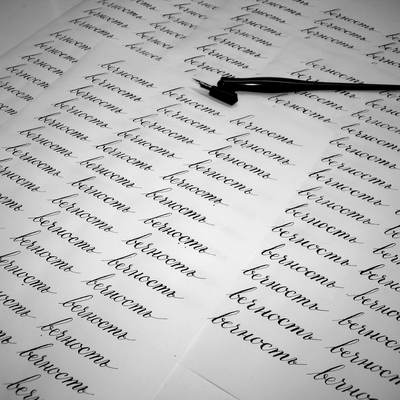 вечность вечность вечность
вечность вечность вечность
вечность вечность вечность
вечность вечность вечность
вечность вечность вечность
вечность вечность вечность
вечность вечность вечность
вечность вечность вечность
вечность вечность вечность
вечность вечность вечность
вечность вечность вечность
вечность вечность вечность
вечность вечность
вечность вечность
вечность вечность
вечность вечность
вечность вечность
вечность вечность
вечность вечность
вечность вечность
вечность вечность
вечность вечность